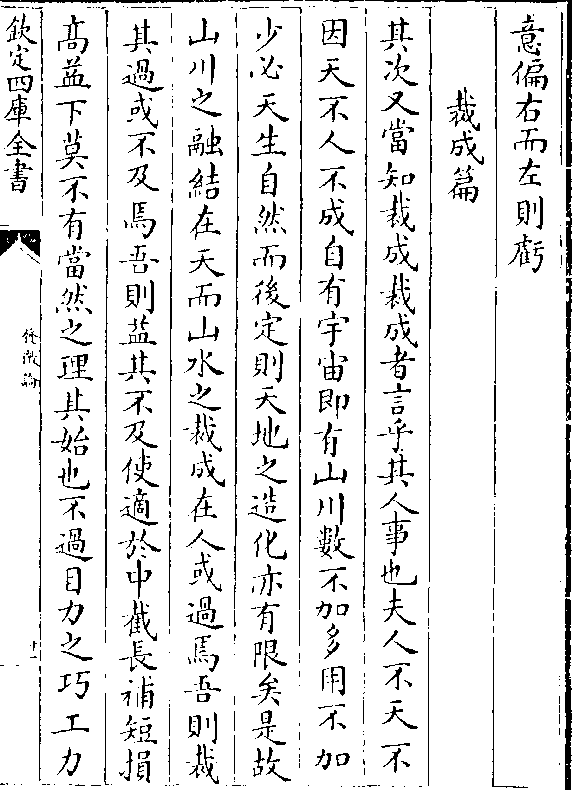 意偏右而左則虧
裁成篇
其次又當知裁成裁成者言乎其人事也夫人不天不
因天不人不成自有宇宙即有山川數不加多用不加
少必天生自然而後定則天地之造化亦有限矣是故
山川之融結在天而山水之裁成在人或過焉吾則裁
其過或不及焉吾則益其不及使適於中截長補短損
高益下莫不有當然之理其始也不過目力之巧工力
欽定四庫全書
發微論
十一